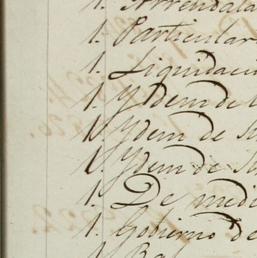 1. Arrendata
1. Particular
1. Liquidaci
1. Ydem de
1. Ydem de Su
1. Ydem de Su
1. De medi
1. Gobierno de
1. Ba